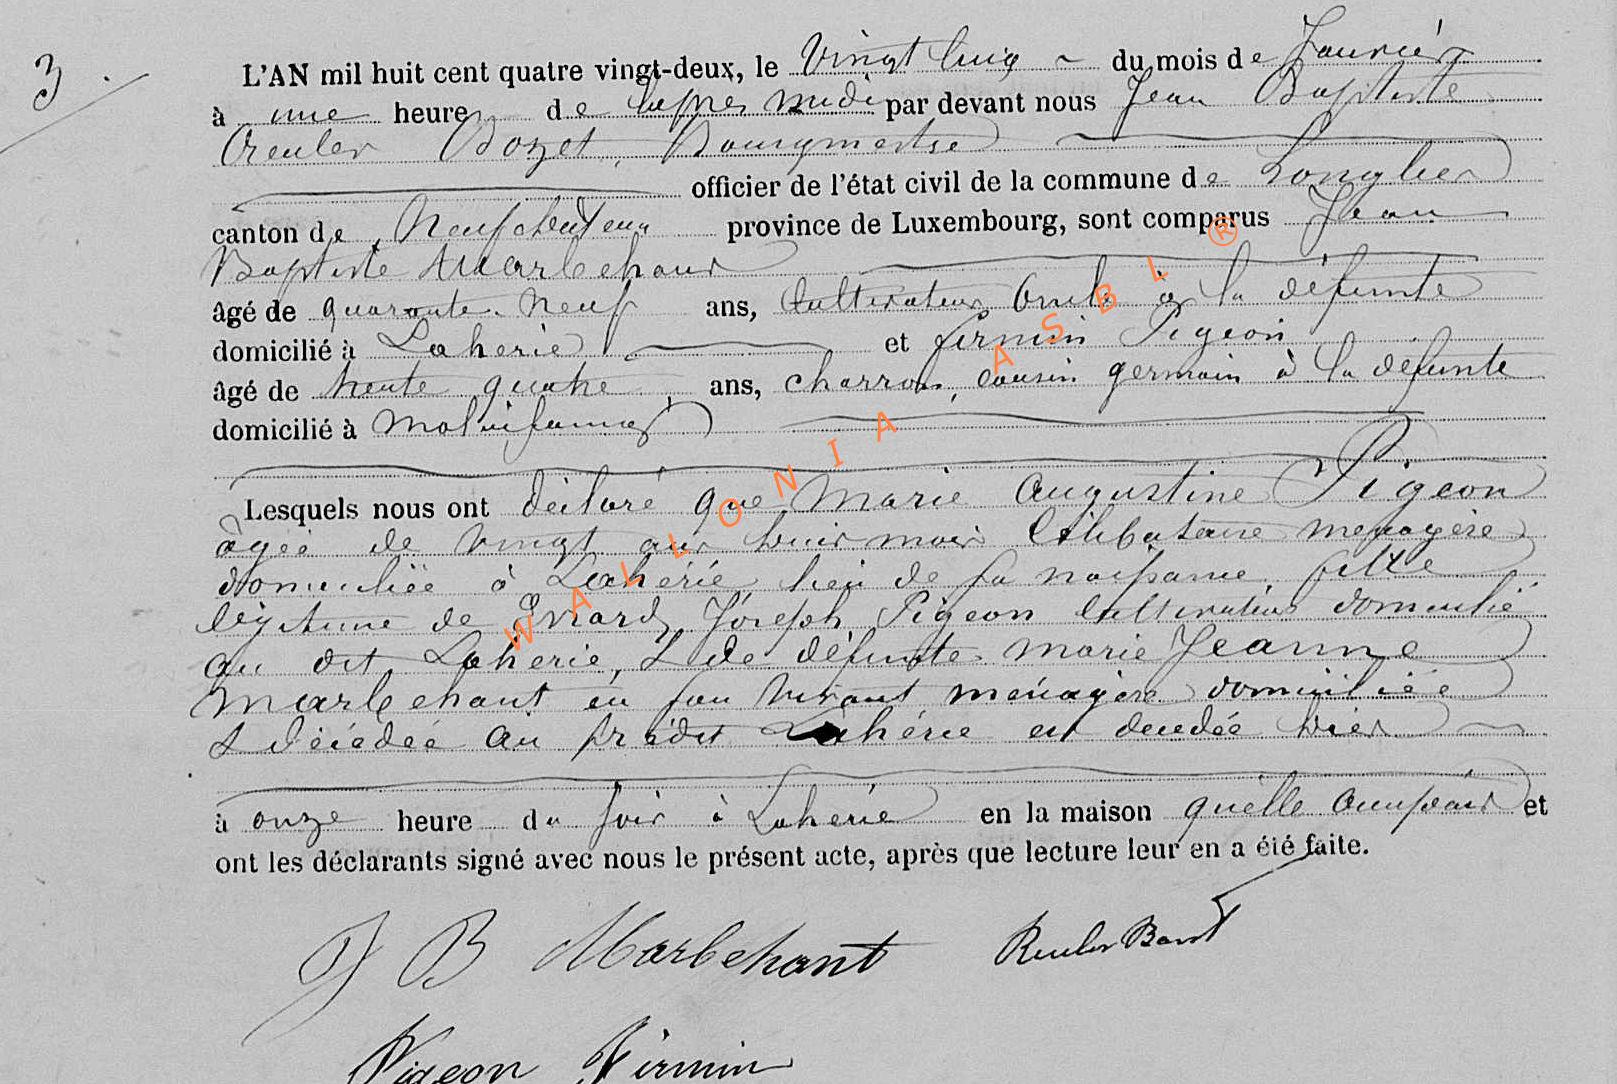 3.
L'AN mil huit cent quatre vingt-deux, le Vingt Cinq du mois de Janvier
à une heure de l'après midi par devant nous Jean Baptiste
Reuler Bozet, Bourgmestre
officier de l'état civil de la commune de Longlier
canton de Neufchâteau province de Luxembourg, sont comparus Jean
Baptiste Marbehant
âgé de quarante neuf ans, Cultivateur Oncle à la défunte
domicilié à Lahérie et firmin Pigeon
âgé de trente quatre ans, charron, cousin germain à la défunte
domicilié à Molinfaing
Lesquels nous ont déclaré que Marie Augustine Pigeon
âgée de vingt ans huit mois Célibataire menagère
domiciliée à Lahérie lieu de sa naissance, fille
légitime de Evrard Joseph Pigeon Cultivateur domicilié
au dit Laherie, & de défunte marie Jeanne
Marbehant en son vivant ménagère domiciliée
& décédée au prédit Lahérie est decedée hier
à onze heure du soir à Laherie en la maison quelle occupait et
ont les déclarants signé avec nous le présent acte, après que lecture leur en a été faite.
J B Marbehant Reuler Bozet
Pigeon Firmin
WALLONIA ASBL ®